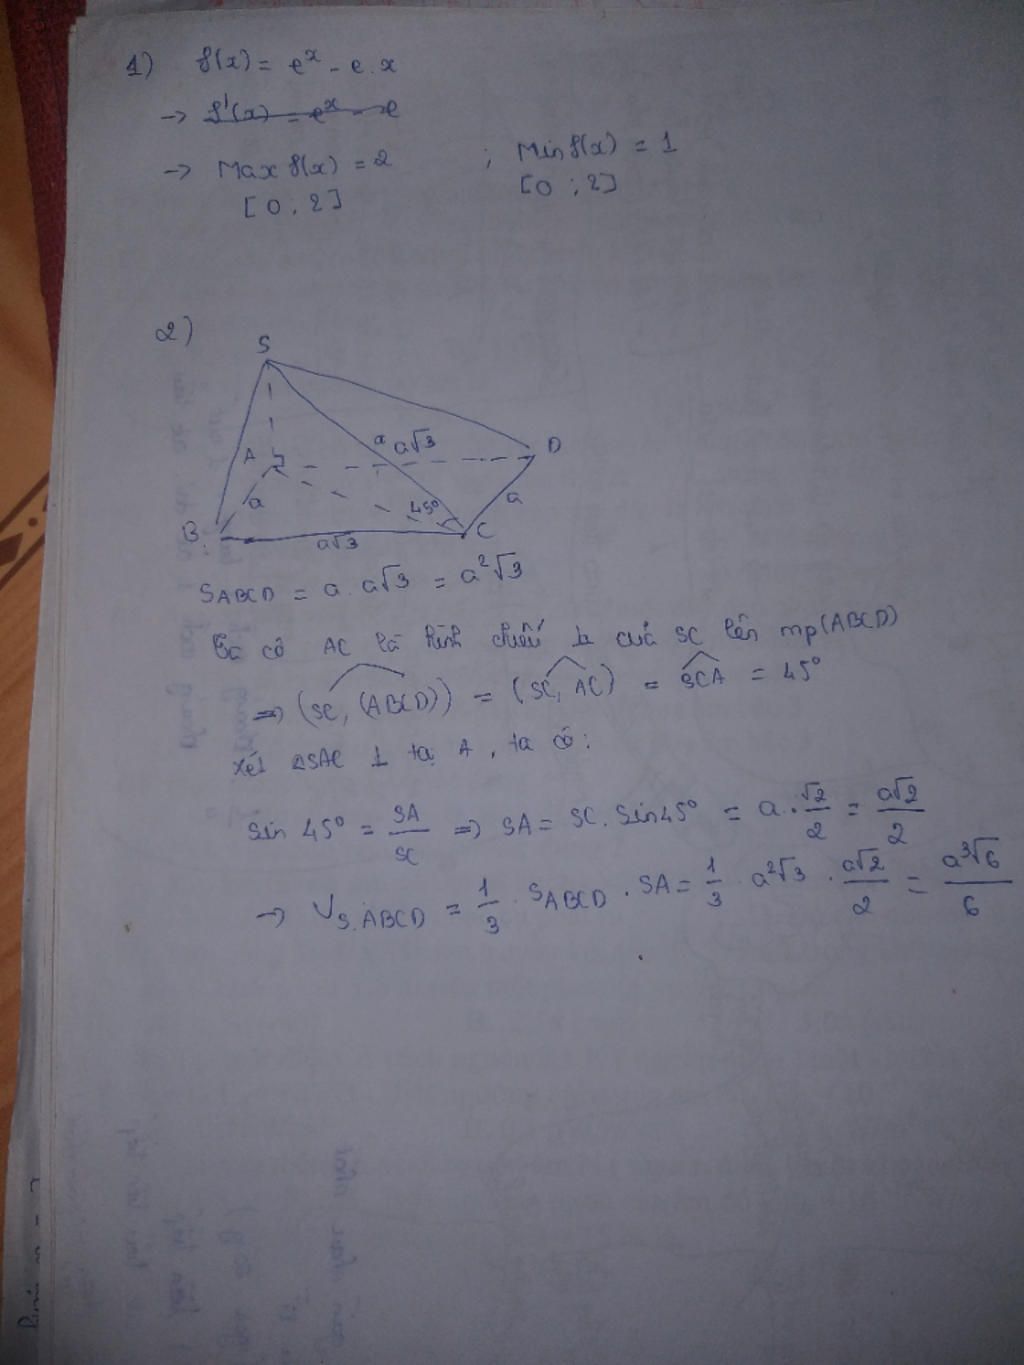 1) f(x) = e^x - e.x
-> f'(x) = e^x - e
-> Max f(x) = 2 ; Min f(x) = 1
[0 ; 2] [0 ; 2]
2)
S
A D
a a√3
a 45° a
B C
a√3
S_ABCD = a . a√3 = a²√3
Ta có AC là hình chiếu ⊥ của SC lên mp(ABCD)
=> (SC, (ABCD)) = (SC, AC) = SCA = 45°
Xét △SAC ⊥ tạ A, ta có:
Sin 45° = SA/SC => SA = SC. Sin45° = a . √2/2 = a√2/2
-> V_S.ABCD = 1/3 . S_ABCD . SA = 1/3 . a²√3 . a√2/2 = a³√6/6